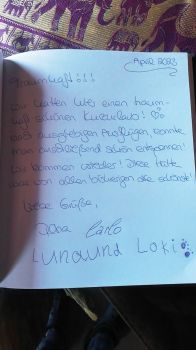 April 2023
Traumhaft!!!
Wir hatten hier einen traum-
haft schönen Kurzurlaub! ♡
Nach ausgiebigen Ausflügen, konnte
man anschließend schön entspannen!
Wir kommen wieder! Diese Hütte
war von allen bisherigen die schönste!
Liebe Grüße,
Jana Carlo
Luna und Loki